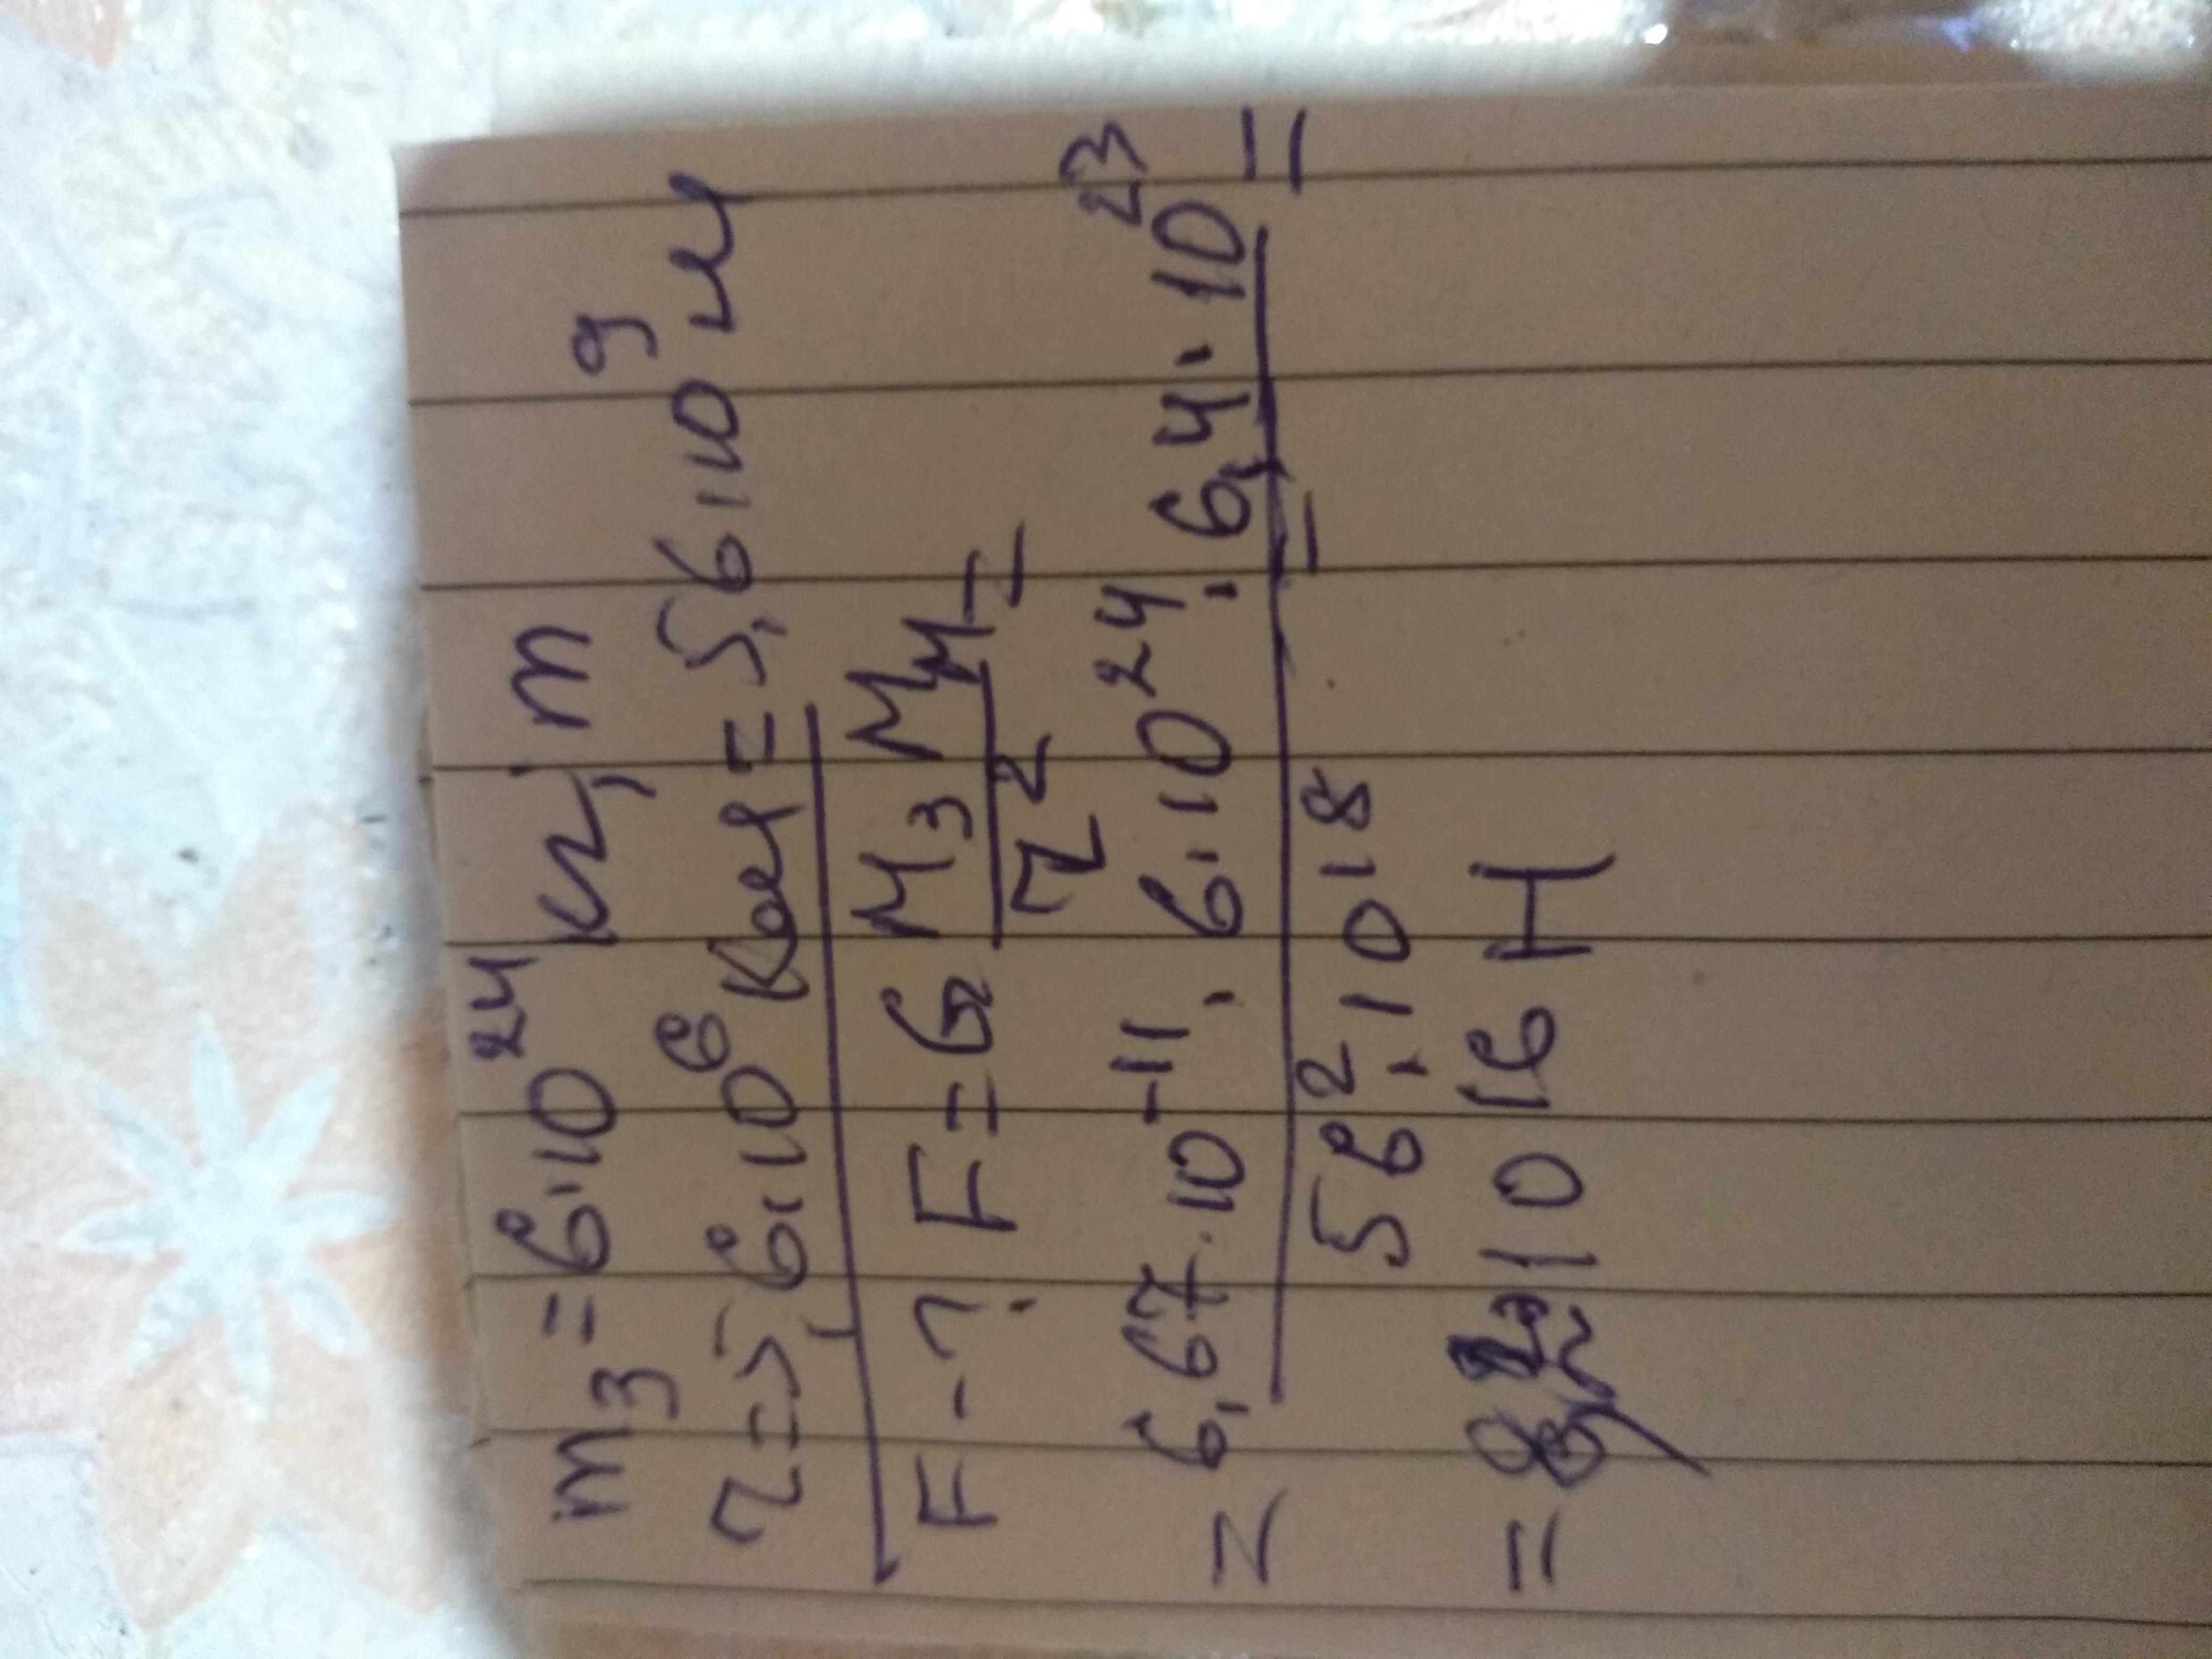 m₃ = 6·10²⁴ кг; m
r = 5,6·10⁶ км = 5,6·10⁹ м
F - ? F = G M₃ Mм / r² =
= 6,67·10⁻¹¹ · 6·10²⁴ · 6,4·10²³ / 56²·10¹⁸ =
10¹⁶ Н